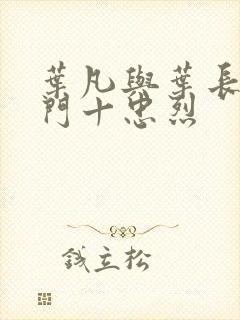 葉凡與葉長
門十忠烈
錢立松